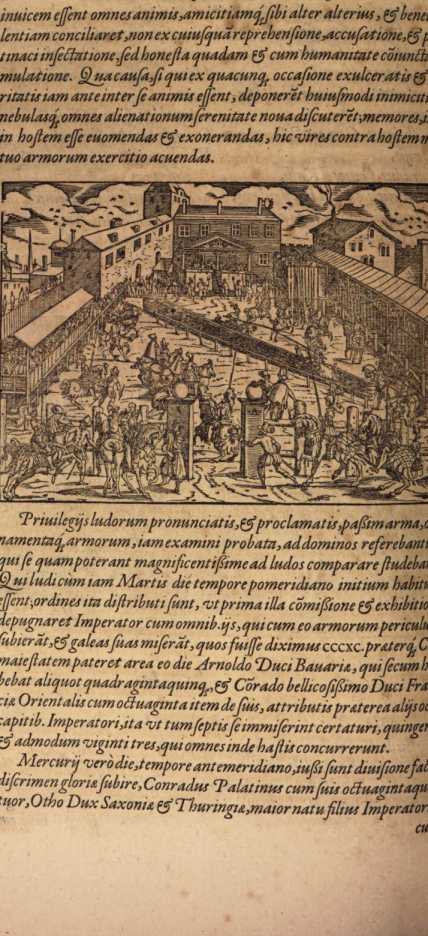 inuicem eſſent omnes animis, amicitiamq́; ſibi alter alterius, & bene
lentiam conciliaret, non ex cuiuſquã reprehenſione, accuſatione, & p
tinaci inſectatione, ſed honeſta quadam & cum humanitate cõiunct
mulatione. Qua cauſa, ſi qui ex quacunq́; occaſione exulceratis &
ritatis iam ante inter ſe animis eſſent, deponerẽt huiuſmodi inimicit
nebulasq́; omnes alienationum ſerenitate noua diſcuterẽt; memores, i
in hoſtem eſſe euomendas & exonerandas, hic vires contra hoſtem m
tuo armorum exercitio acuendas.
Priuilegijs ludorum pronunciatis, & proclamatis, paßim arma, o
namentaq́; armorum, iam examini probata, ad dominos referebant
qui ſe quam poterant magnificentißime ad ludos comparare ſtudeba
Qui ludi cùm iam Martis die tempore pomeridiano initium habitu
eſſent; ordines ita diſtributi ſunt, vt prima illa cõmißione & exhibitio
depugnaret Imperator cum omnib. ijs, qui cum eo armorum periculu
ſubierãt, & galeas ſuas miſerãt, quos fuiſſe diximus CCCXC. præterq́; C
maieſtatem pateret area eo die Arnoldo Duci Bauariæ, qui ſecum h
bebat aliquot quadragintaquinq́; & Cõrado bellicoſißimo Duci Fra
ciæ Orientalis cum octuaginta item de ſuis, attributis præterea alijs oc
capitib. Imperatori, ita vt tum ſeptis ſe immiſerint certaturi, quingen
& admodum viginti tres, qui omnes inde haſtis concurrerunt.
Mercurij verò die, tempore antemeridiano, iußi ſunt diuiſione fac
diſcrimen gloriæ ſubire, Conradus Palatinus cum ſuis octuagintaqu
tuor, Otho Dux Saxoniæ & Thuringiæ, maior natu filius Imperator
cu